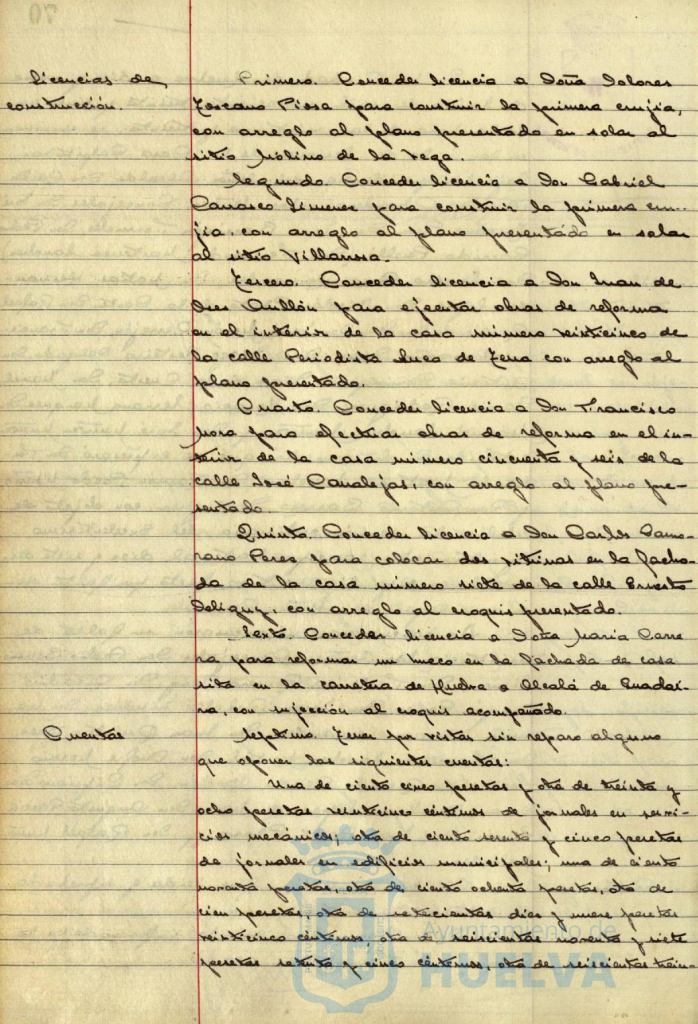 70
Licencias de
construcción.
Primero. Conceder licencia a Doña Dolores
Toscano Piosa para construir la primera crujia,
con arreglo al plano presentado en solar al
sitio Molino de la Vega.
Segundo. Conceder licencia a Don Gabriel
Carrasco Jimenez para construir la primera cru-
jia, con arreglo al plano presentado en solar
al sitio Villarrosa.
Tercero. Conceder licencia a Don Juan de
Dios Aullón para ejecutar obras de reforma
en el interior de la casa número veinticinco de
la calle Periodista Luca de Tena con arreglo al
plano presentado.
Cuarto. Conceder licencia a Don Francisco
Mora para efectuar obras de reforma en el in-
terior de la casa número cincuenta y seis de la
calle José Canalejas, con arreglo al plano pre-
sentado.
Quinto. Conceder licencia a Don Carlos Zamo-
rano Perez para colocar dos vitrinas en la facha-
da de la casa número siete de la calle Ernesto
Deligny, con arreglo al croquis presentado.
Sexto. Conceder licencia a Doña Maria Carre
ra para reformar un hueco en la fachada de casa
sita en la carretera de Huelva a Alcalá de Guadai-
ra, con sujección al croquis acompañado.
Cuentas
Septimo. Tener por vistas sin reparo alguno
que oponer las siguientes cuentas:
Una de ciento cinco pesetas y otra de treinta y
ocho pesetas veinticinco céntimos de jornales en servi-
cios mecánicos; otra de ciento sesenta y cinco pesetas
de jornales en edificios municipales; una de ciento
noventa pesetas, otra de ciento ochenta pesetas, otra de
cien pesetas, otra de setecientas diez y nueve pesetas
veinticinco céntimos, otra de seiscientas noventa y siete
pesetas setenta y cinco céntimos, otra de seiscientas trein-
Ayuntamiento de
HUELVA